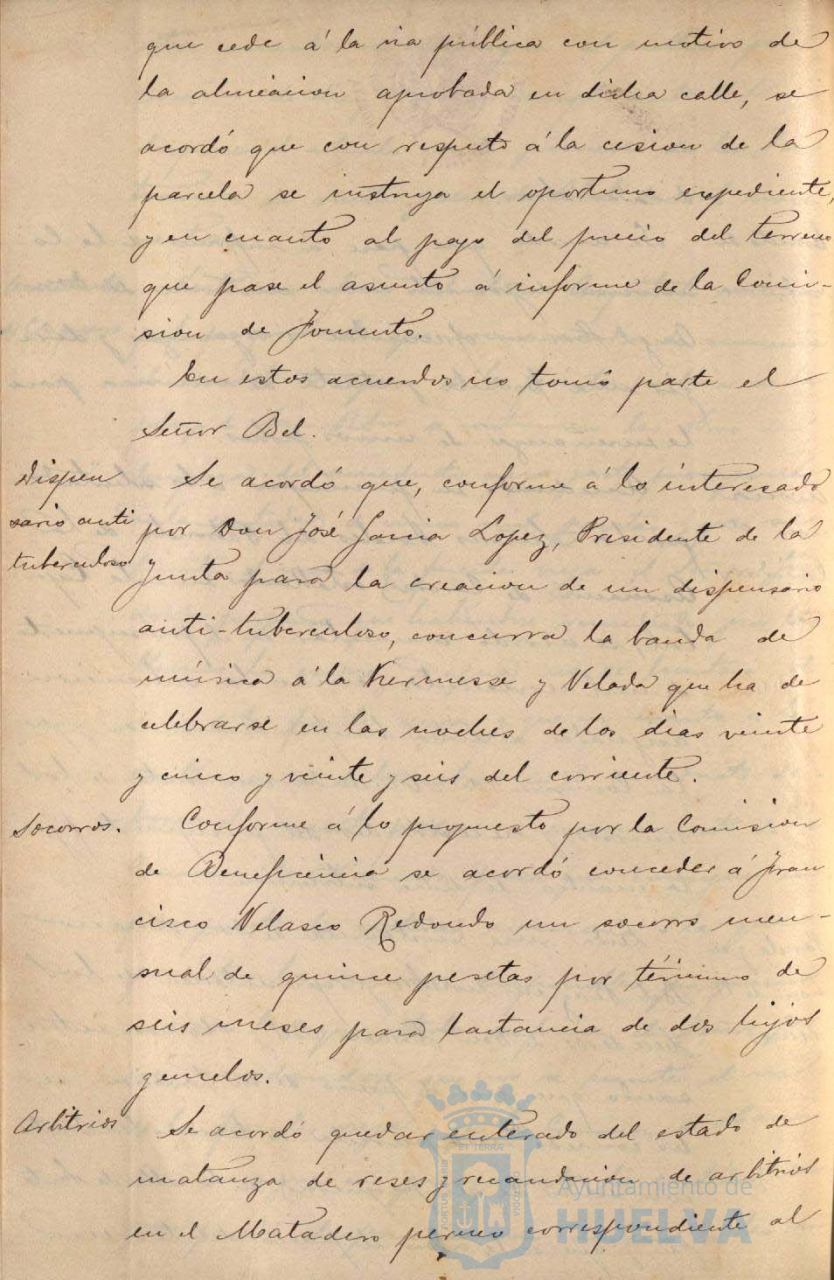 que cede á la via pública con motivo de
la alineacion aprobada en dicha calle, se
acordó que con respeto á la cesion de la
parcela se instruya el oportuno expediente,
y en cuanto al pago del precio del terreno
que pase el asunto á informe de la Comi-
sion de Fomento.
En estos acuerdos no tomó parte el
Señor Bel.
Dispen
sario anti
tuberculoso
Se acordó que, conforme á lo interesado
por Don José Garcia Lopez, Presidente de la
Junta para la creacion de un dispensario
anti-tuberculoso, concurra la banda de
música á la Kermesse y Velada que ha de
celebrarse en las noches de los dias veinte
y cinco y veinte y seis del corriente.
Socorros.
Conforme á lo propuesto por la Comision
de Beneficencia se acordó conceder á Fran
cisco Velasco Redondo un socorro men-
sual de quince pesetas por término de
seis meses para lactancia de dos hijos
gemelos.
Arbitrios
Se acordó quedar enterado del estado de
matanza de reses y recaudacion de arbitrios
en el Matadero correspondiente al
Ayuntamiento de
HUELVA